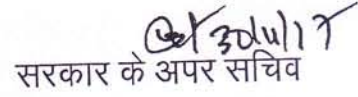 30/4/17
सरकार के अपर सचिव